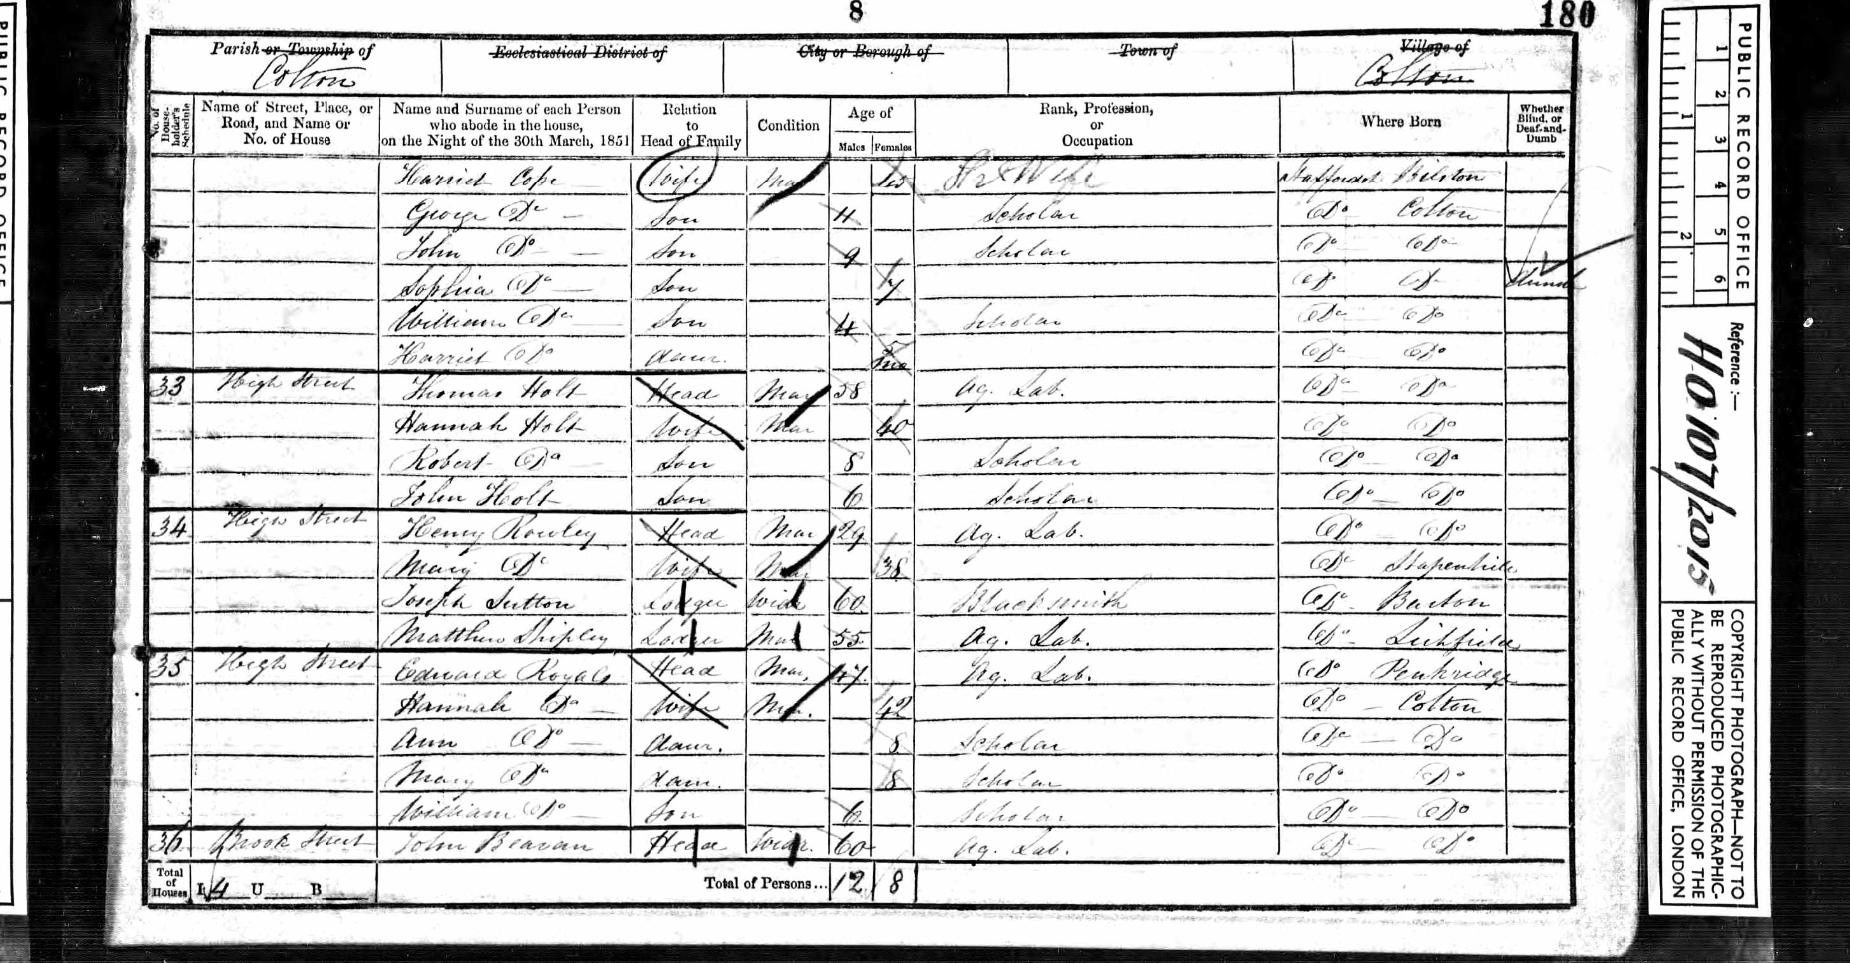 8
180
Parish or Township of
Colton
Ecclesiastical District of
City or Borough of
Town of
Village of
Colton
No. of House-holder's Schedule
Name of Street, Place, or Road, and Name or No. of House
Name and Surname of each Person who abode in the house, on the Night of the 30th March, 1851
Relation to Head of Family
Condition
Age of
Males Females
Rank, Profession, or Occupation
Where Born
Whether Blind, or Deaf-and-Dumb
Harriet Cope Wife Mar Wife Staffordsh Bilston
George Do Son Scholar Do Colton
John Do Son 9 Scholar Do Do
Sophia Do Son 7 Do Do Dumb
William Do Son 4 Scholar Do Do
Harriet Do daur. Do Do
33 High Street Thomas Holt Head Mar 58 Ag. Lab. Do Do
Hannah Holt Wife Mar 40 Do Do
Robert Do Son 8 Scholar Do Do
John Holt Son 6 Scholar Do Do
34 High Street Henry Rowley Head Mar 29 Ag. Lab. Do Do
Mary Do Wife Mar 38 Do Stapenhill
Joseph Sutton Lodger Widr 60 Blacksmith Do Barton
Matthew Shipley Lodger Mar 55 Ag. Lab. Do Lichfield
35 High Street Edward Royals Head Mar. 47 Ag. Lab. Do Penkridge
Hannah Do Wife Mar. 42 Do Colton
Ann Do daur. 8 Scholar Do Do
Mary Do daur. 8 Scholar Do Do
William Do Son 6 Scholar Do Do
36 Brook Street John Beavan Head Widr. 60 Ag. Lab. Do Do
Total of Houses
I 4 U B
Total of Persons... 12 8
PUBLIC RECORD OFFICE
1 2 3 4 5 6
1 2
Reference :—
HO 107/2015
COPYRIGHT PHOTOGRAPH—NOT TO
BE REPRODUCED PHOTOGRAPHIC-
ALLY WITHOUT PERMISSION OF THE
PUBLIC RECORD OFFICE, LONDON
PUBLIC RECORD OFFICE